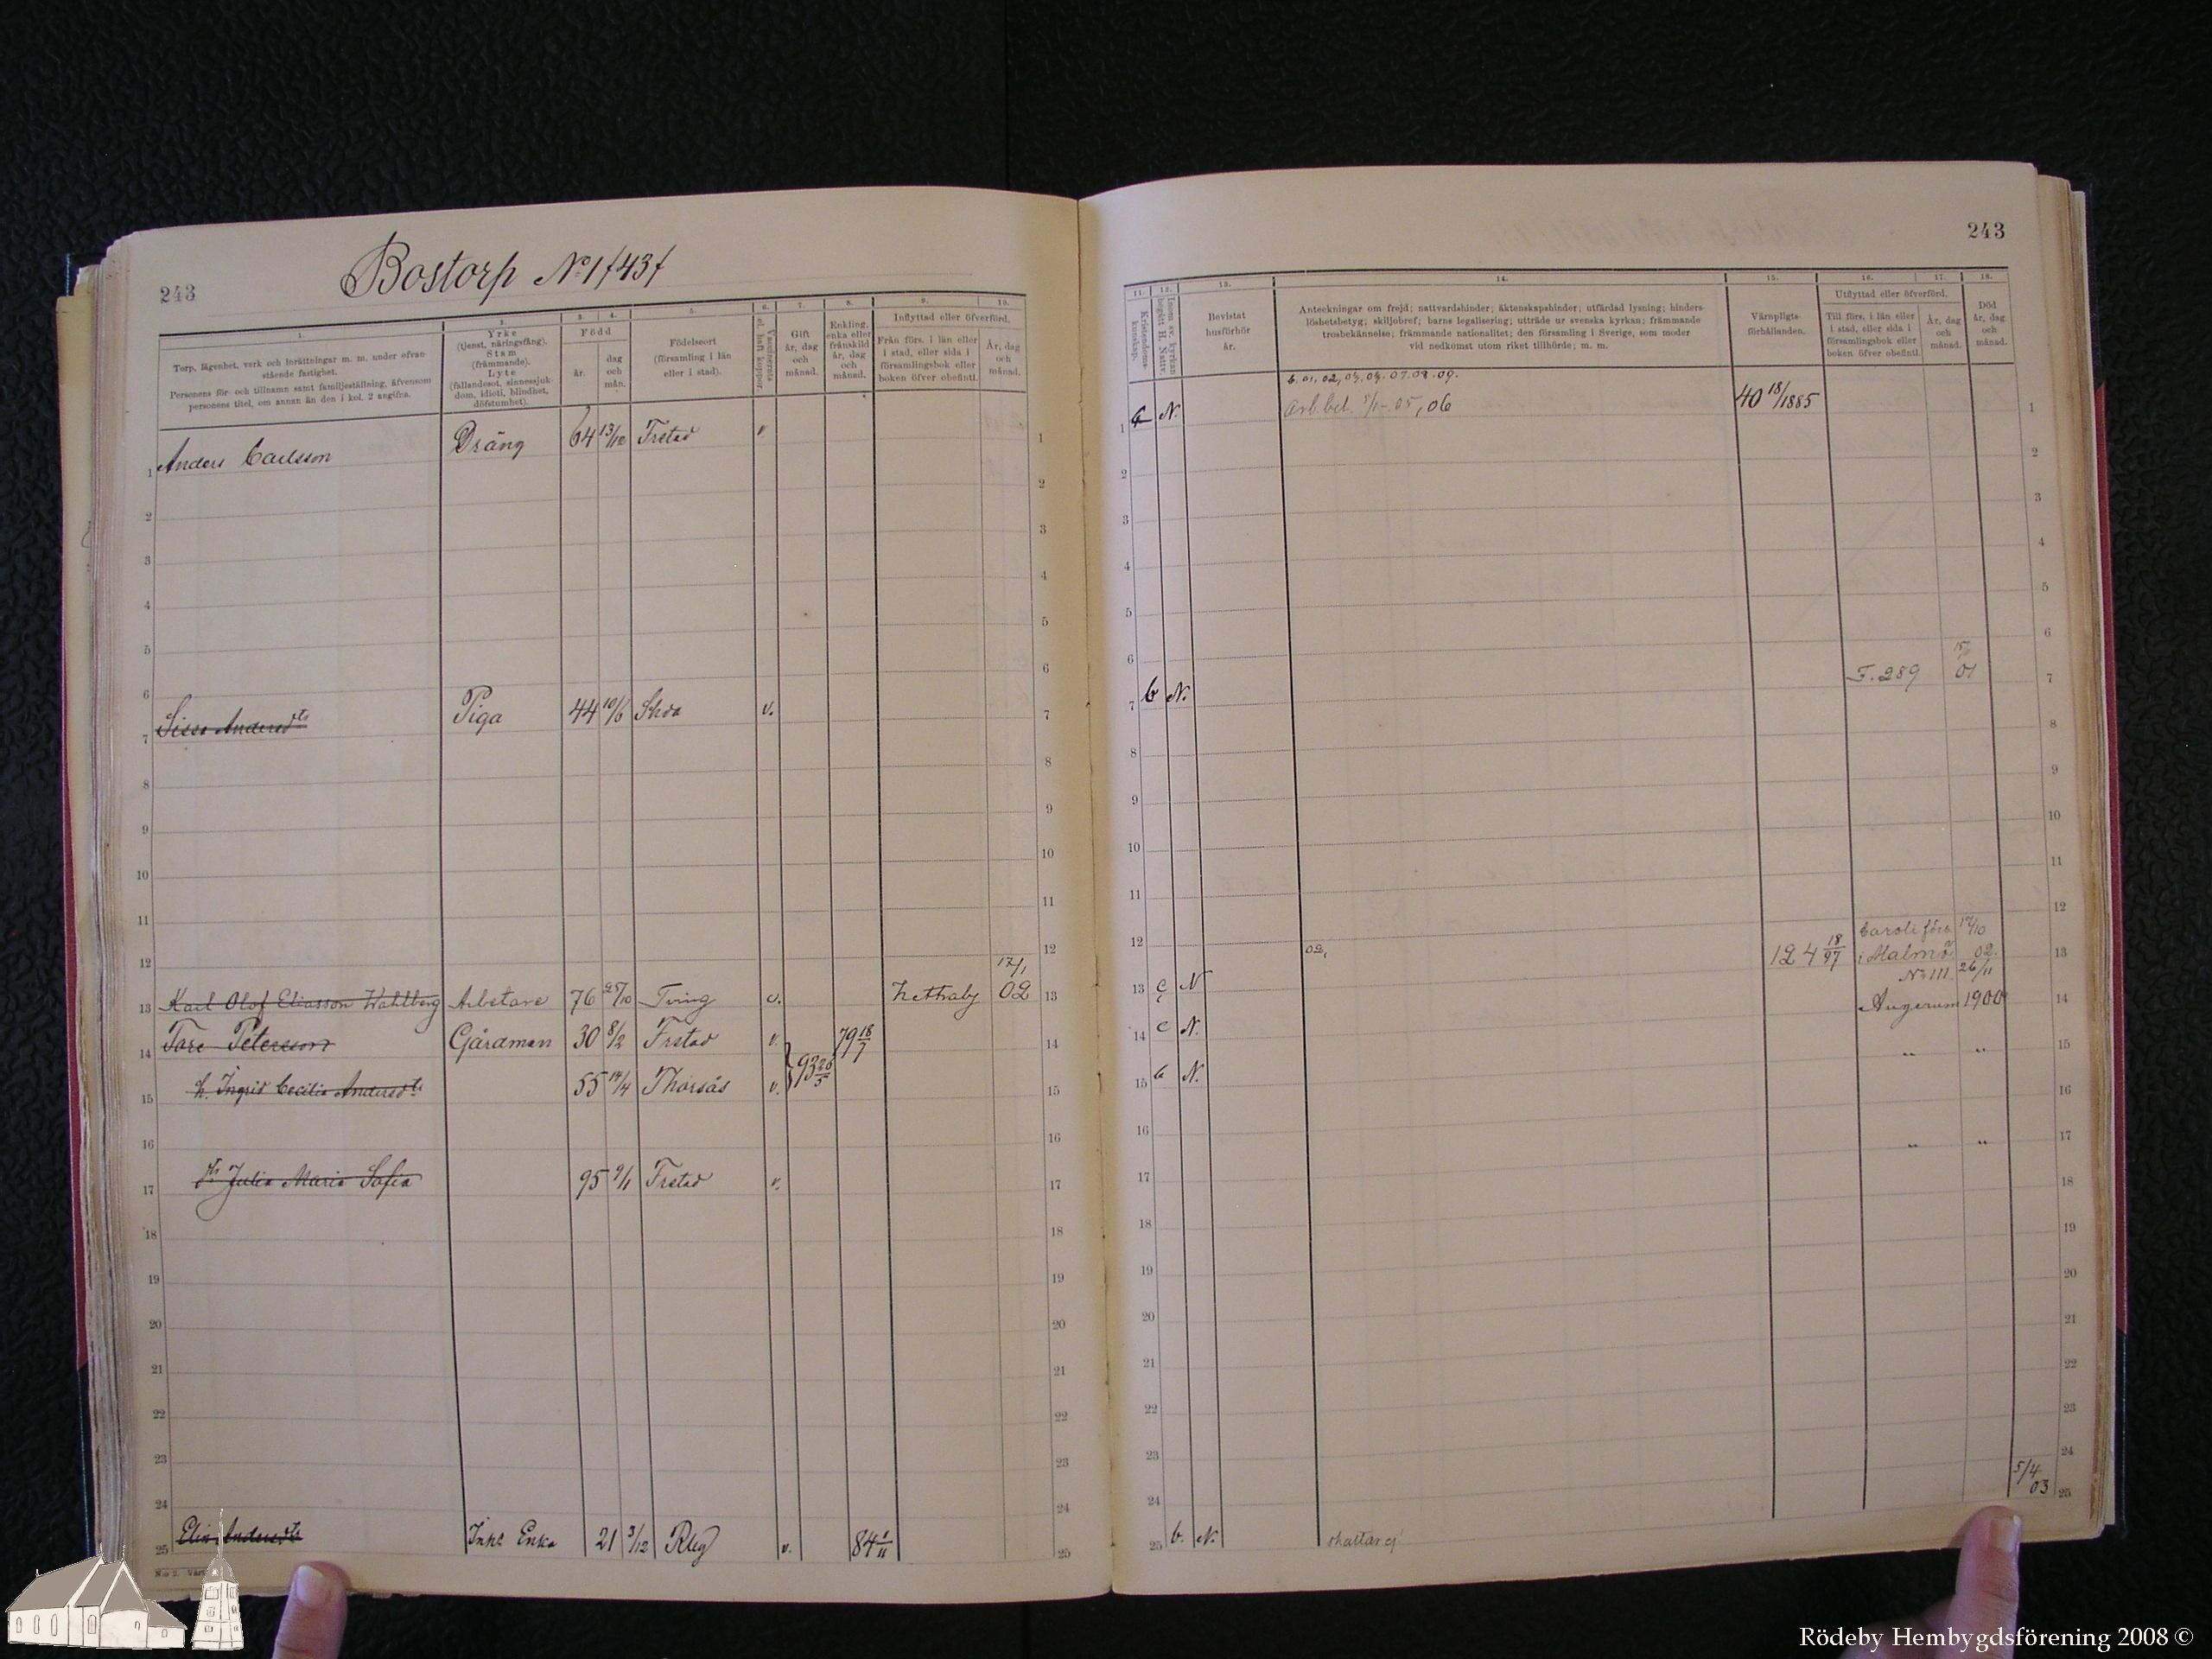 243
Bostorp No 1 /43/
1.
Torp, lägenhet, verk och inrättningar m. m. under ofvanstående fastighet.
Personens för- och tillnamn samt familjeställning, äfvensom
personens titel, om annan än den i kol. 2 angifna.
2.
Yrke
(tjenst, näringsfång).
Stam
(främmande).
Lyte
(fallandesot, sinnessjuk-
dom, idioti, blindhet,
döfstumhet).
3. 4.
Född
år.
dag
och
mån.
5.
Födelseort
(församling i län
eller i stad).
6.
Vaccinerats
el. haft koppor.
7.
Gift
år, dag
och
månad.
8.
Enkling,
enka eller
frånskild
år, dag
och
månad.
9. 10.
Inflyttad eller öfverförd.
Från förs. i län eller
i stad, eller sida i
församlingsbok eller
boken öfver obefintl.
År, dag
och
månad.
1 Anders Carlsson Dräng 64 13/10 Frstad v. 1
2 2
3 3
4 4
5 5
6 6
7 Sissa Andersdtr Piga 44 10/6 v. 7
8 8
9 9
10 10
11 11
12 12
13 Karl Olof Eliasson Wahlberg Arbetare 76 25/10 Tving v. Nettraby 17/1 02 13
14 Tore Petersson Gårdman 30 8/2 Frstad v. 79 18/7 14
15 h. Ingrid Cecilia Andersdtr 55 14/4 Thorsås v. 93 26/5 15
16 16
17 dtr Julia Maria Sofia 95 9/1 Frstad v. 17
18 18
19 19
20 20
21 21
22 22
23 23
24 24
25 Elin Andersdtr Inhs Enka 21 3/12 Rby v. 84 1/11 25
243
11.
Kristendoms-
kunskap.
12.
Inom sv. kyrkan
begått H. Nattv.
13.
Bevistat
husförhör
år.
14.
Anteckningar om frejd; nattvardshinder; äktenskapshinder; utfärdad lysning; hinders-
löshetsbetyg; skiljobref; barns legalisering; utträde ur svenska kyrkan; främmande
trosbekännelse; främmande nationalitet; den församling i Sverige, som moder
vid nedkomst utom riket tillhörde; m. m.
15.
Värnpligts-
förhållanden.
16. 17.
Utflyttad eller öfverförd.
Till förs. i län eller
i stad, eller sida i
församlingsbok eller
boken öfver obefintl.
År, dag
och
månad.
18.
Död
år, dag
och
månad.
N.
Arb.bet. 05, 06
40 18/1885
1
7 b N. F. 289 01 7
13 c N 02, 124 18/97 Caroli förs. i Malmö 17/10 02 13
No 111 26/11
14 c N. Augerum 1900 14
15 b N. " " 15
" " 17
25 b. N. skattar ej 5/4 03 25
Rödeby Hembygdsförening 2008 ©